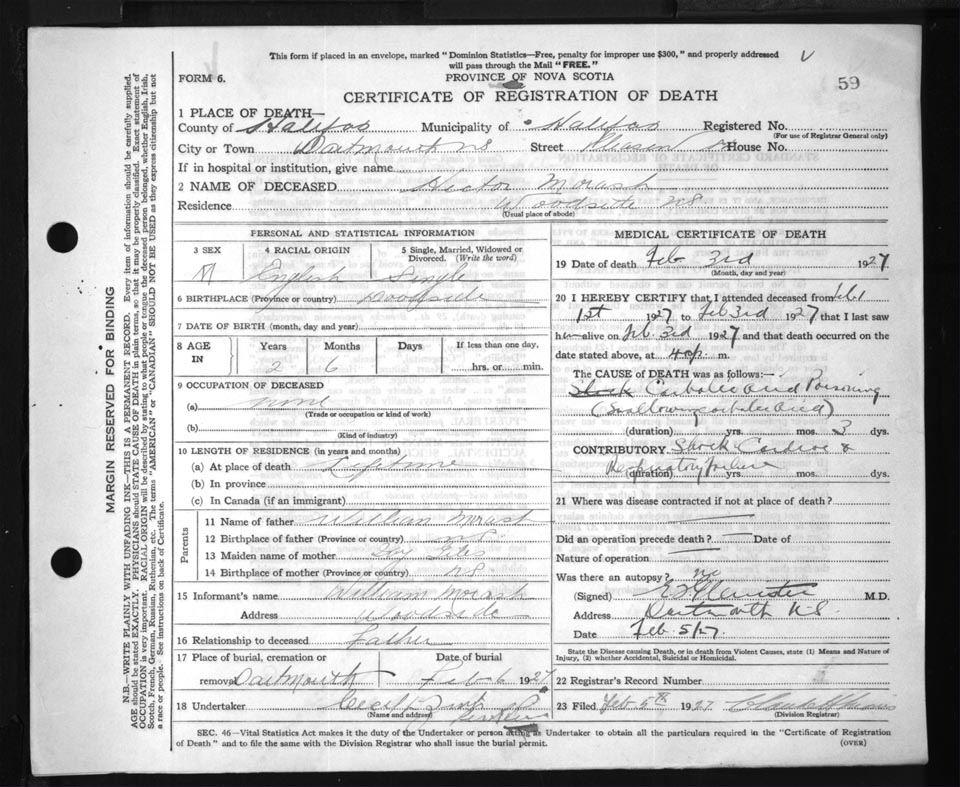 This form if placed in an envelope, marked "Dominion Statistics—Free, penalty for improper use $300," and properly addressed
will pass through the Mail "FREE."
FORM 6.
PROVINCE OF NOVA SCOTIA
59
CERTIFICATE OF REGISTRATION OF DEATH
1 PLACE OF DEATH—
County of Halifax Municipality of Halifax Registered No.
(For use of Registrar General only)
City or Town Dartmouth NS Street House No.
If in hospital or institution, give name
2 NAME OF DECEASED Hector Morash
Residence Woodside NS
(Usual place of abode)
PERSONAL AND STATISTICAL INFORMATION
3 SEX 4 RACIAL ORIGIN 5 Single, Married, Widowed or Divorced. (Write the word)
M English Single
6 BIRTHPLACE (Province or country) Woodside
7 DATE OF BIRTH (month, day and year)
8 AGE IN Years Months Days If less than one day,
2 6 hrs. or min.
9 OCCUPATION OF DECEASED
(a) none
(Trade or occupation or kind of work)
(b)
(Kind of industry)
10 LENGTH OF RESIDENCE (in years and months)
(a) At place of death Lifetime
(b) In province
(c) In Canada (if an immigrant)
Parents
11 Name of father William Morash
12 Birthplace of father (Province or country) NS
13 Maiden name of mother
14 Birthplace of mother (Province or country) NS
15 Informant's name William Morash
Address Woodside
16 Relationship to deceased Father
17 Place of burial, cremation or Date of burial
removal Dartmouth Feb 6 1927
18 Undertaker
(Name and address)
MEDICAL CERTIFICATE OF DEATH
19 Date of death Feb 3rd 1927
(Month, day and year)
20 I HEREBY CERTIFY that I attended deceased from Feb
1st 1927 to Feb 3rd 1927 that I last saw
h alive on Feb. 3rd 1927 and that death occurred on the
date stated above, at 4 p. m.
The CAUSE OF DEATH was as follows:—
Shock Carbolic acid Poisoning
(Swallowing carbolic acid)
(duration) yrs. mos. 3 dys.
CONTRIBUTORY. Shock Cardiac &
Respiratory failure
(duration) yrs. mos. dys.
21 Where was disease contracted if not at place of death?
Did an operation precede death? Date of
Nature of operation
Was there an autopsy? no
(Signed) M.D.
Address Dartmouth N.S.
Date Feb 5/27
State the Disease causing Death, or in death from Violent Causes, state (1) Means and Nature of
Injury, (2) whether Accidental, Suicidal or Homicidal.
22 Registrar's Record Number
23 Filed Feb 5th 1927
(Division Registrar)
SEC. 46—Vital Statistics Act makes it the duty of the Undertaker or person acting as Undertaker to obtain all the particulars required in the "Certificate of Registration
of Death" and to file the same with the Division Registrar who shall issue the burial permit.
(OVER)
MARGIN RESERVED FOR BINDING
N.B.—WRITE PLAINLY WITH UNFADING INK—THIS IS A PERMANENT RECORD. Every item of information should be carefully supplied.
AGE should be stated EXACTLY. PHYSICIANS should STATE CAUSE OF DEATH in plain terms, so that it may be properly classified. Exact statement of
OCCUPATION is very important. RACIAL ORIGIN will be described by stating to what people or tongue the deceased person belonged, whether English, Irish,
Scotch, French, German, Russian, Ruthenian, etc. The terms "AMERICAN" or "CANADIAN" SHOULD NOT BE USED as they express citizenship but not
a race or people. See instructions on back of Certificate.